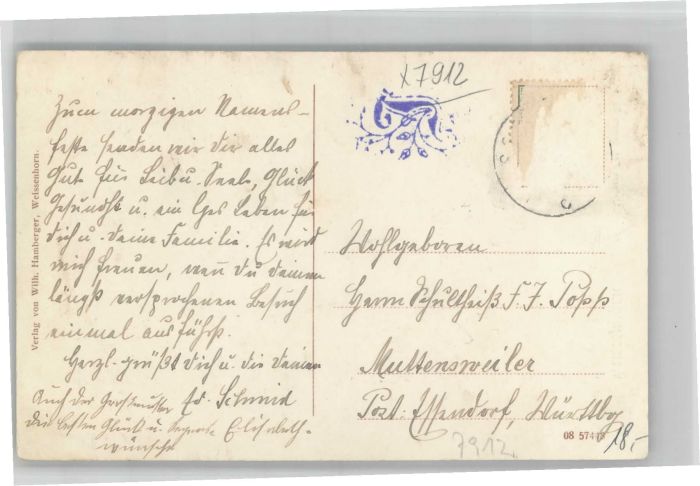 x7912
Zum morgigen Namens-
feste senden wir dir alles
Gute für Leib u. Seele, Glück
Gesundht u. ein lges Leben für
dich u. deine Familie. Es wird
mich freuen, wenn du deinen
längst versprochenen Besuch
einmal ausführst.
Herzl. grüßt dich u. die deinen
Schmid
Auch der
die besten Glück u. Segens-
wünsche
Elisabeth
Verlag von Wilh. Hamberger, Weissenhorn.
Wohlgeboren
Herrn Schultheiß F. J. Popp
Muttensweiler
Post: Essendorf, Württbg
7912.
08 57473
18,-